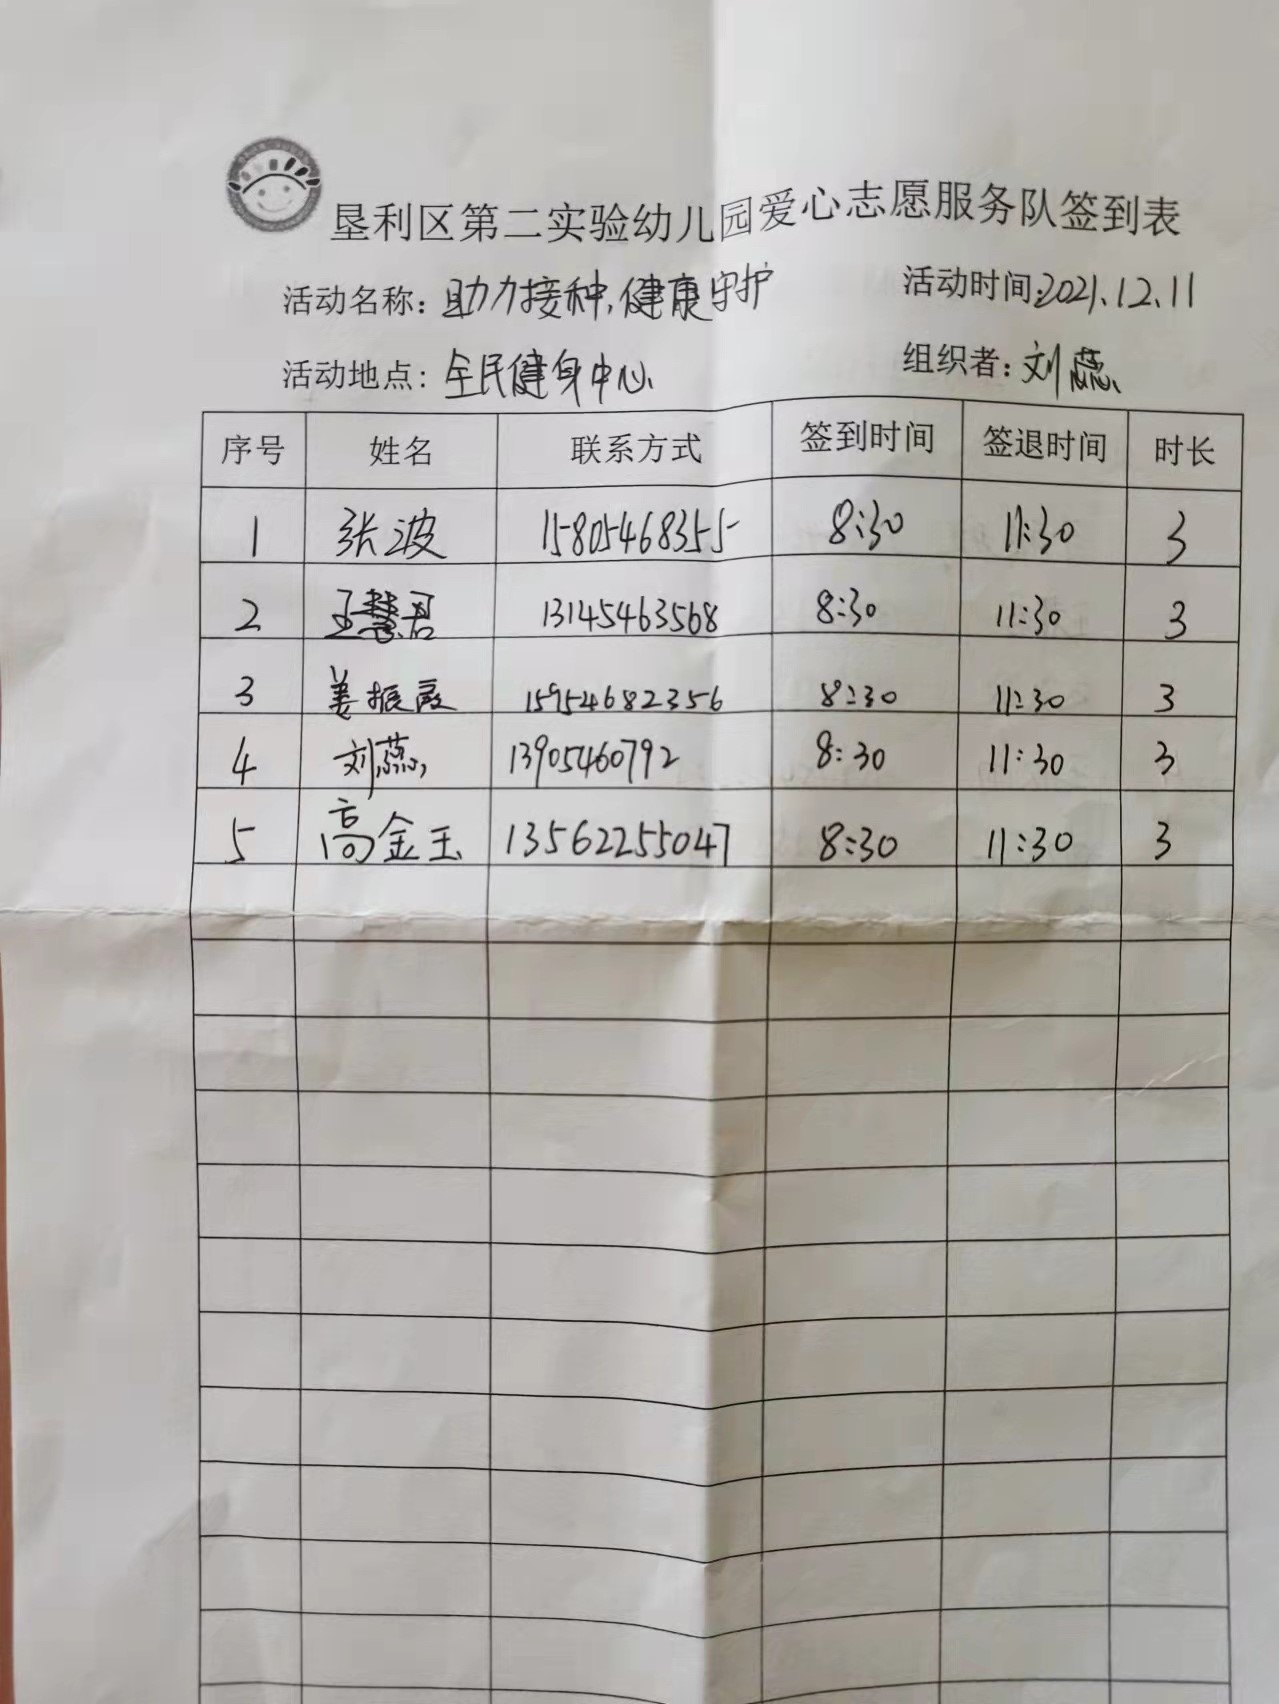 垦利区第二实验幼儿园爱心志愿服务队签到表
活动名称：助力接种,健康守护 活动时间:2021.12.11
活动地点：全民健身中心 组织者：刘蕊
序号 姓名 联系方式 签到时间 签退时间 时长
1 张波 15805468355 8:30 11:30 3
2 王慧君 13145463568 8:30 11:30 3
3 姜振 15954682356 8:30 11:30 3
4 刘蕊 13905460792 8:30 11:30 3
5 高金玉 13562255047 8:30 11:30 3